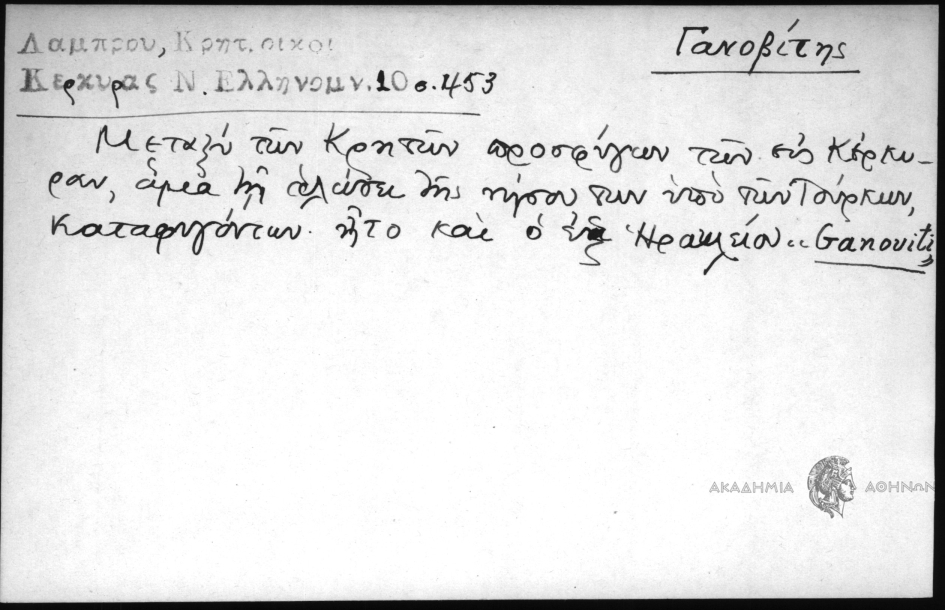 Λαμπρου, Κρητ. οικοι
Κερκυρας Ν. Ελληνομν. 10 σ. 453
Γανοβίτης
Μεταξύ τῶν Κρητῶν προσφύγων τῶν εἰς Κέρκυ-
ραν, ἅμα τῇ ἁλώσει τῆς νήσου των ὑπὸ τῶν Τούρκων,
καταφυγόντων ἦτο καὶ ὁ ἐξ Ἡρακλείου „Ganoviti„
ΑΚΑΔΗΜΙΑ ΑΘΗΝΩΝ